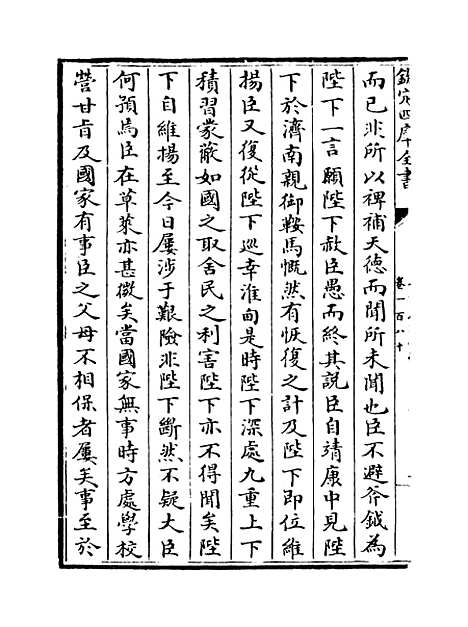 欽定四庫全書
卷一百八十
而已非所以裨補天德而聞所未聞也臣不避斧鉞為
陛下一言願陛下赦臣愚而終其說臣自靖康中見陛
下於濟南親御鞍馬慨然有恢復之計及陛下即位維
揚臣又復從陛下巡幸淮甸是時陛下深處九重上下
積習蒙蔽如國之取舍民之利害陛下亦不得聞矣陛
下自維揚至今日屢涉于艱險非陛下斷然不疑大臣
何預焉臣在草萊亦甚微矣當國家無事時方處學校
營甘㫖及國家有事臣之父母不相保者屢矣事至於